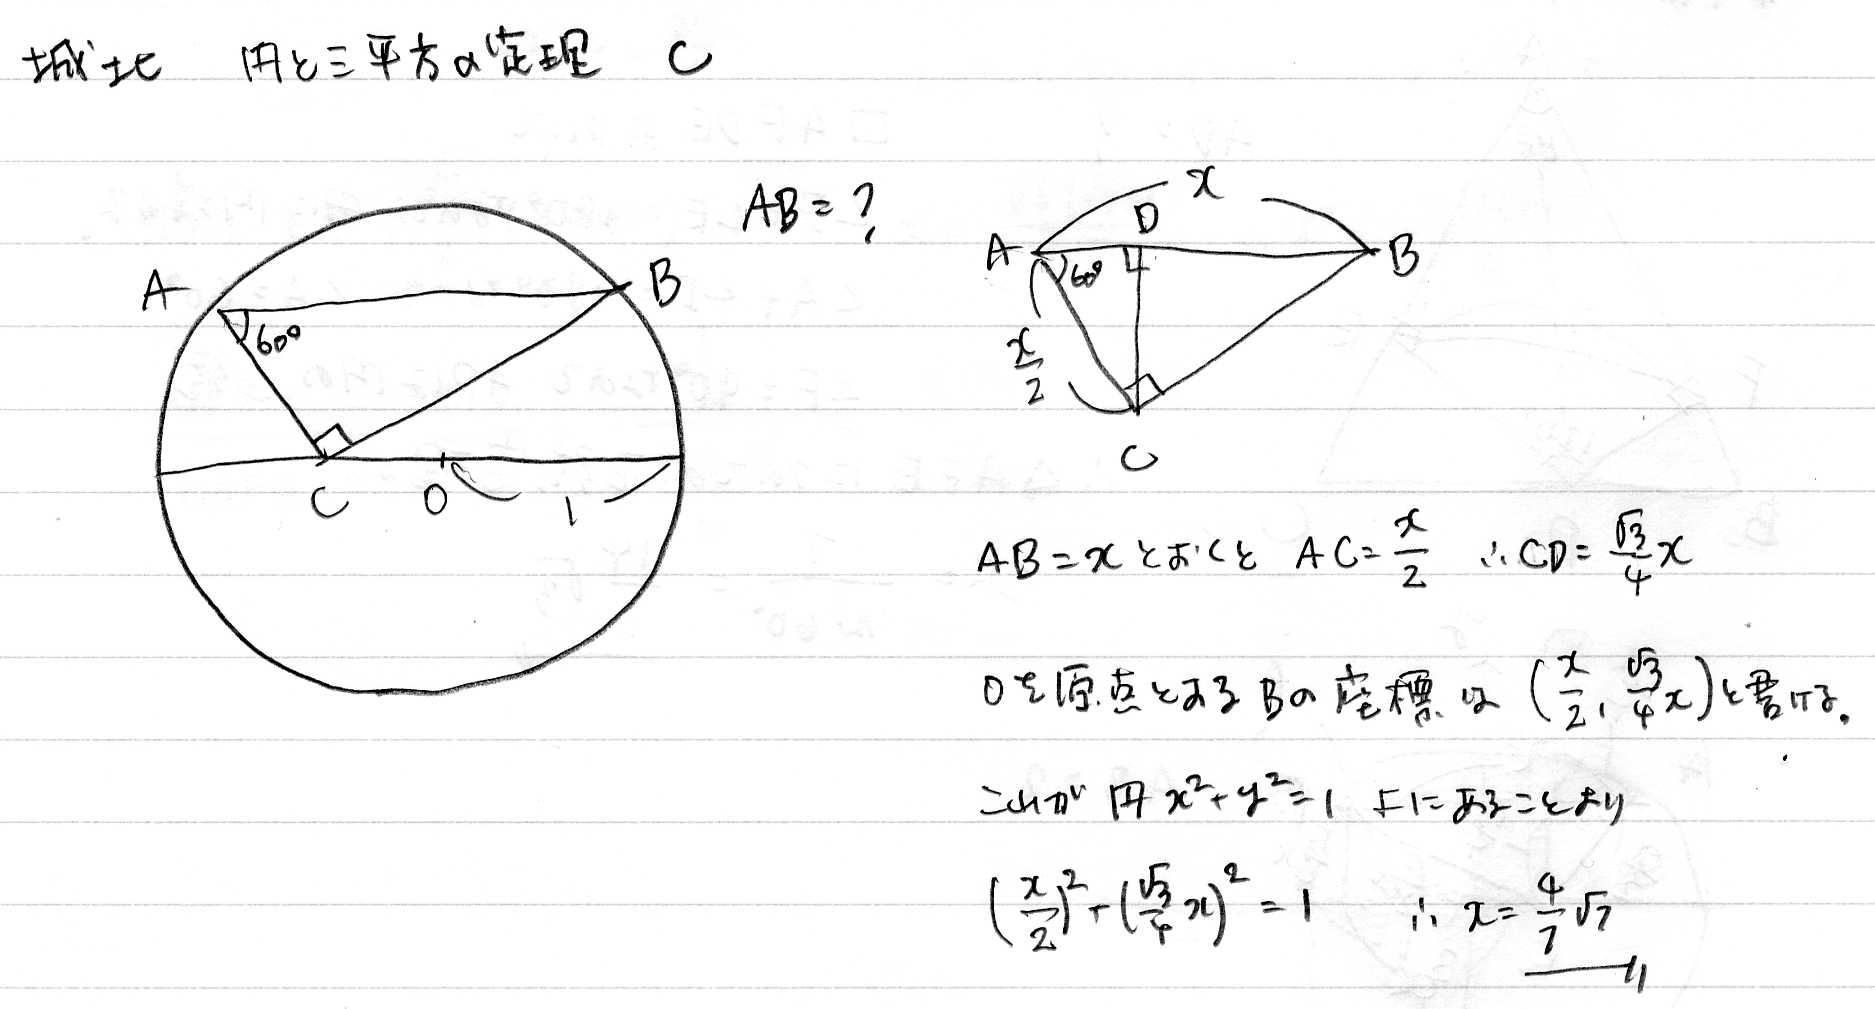 城北 円と三平方の定理 C
AB=?
A
B
60°
C
O
1
x
D
A
B
60°
x/2
C
AB=xとおくと AC=x/2 ∴CD=√3/4 x
Oを原点とするBの座標は (x/2, √3/4 x)と書ける。
これが 円 x²+y²=1 上にあることより
(x/2)²+(√3/4 x)²=1 ∴ x=4/7 √7